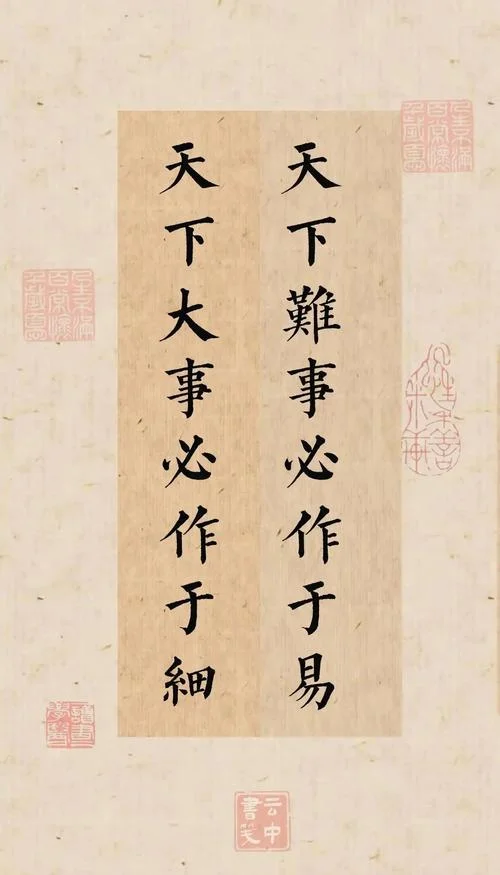 天下難事必作于易
天下大事必作于細
云中
書笺